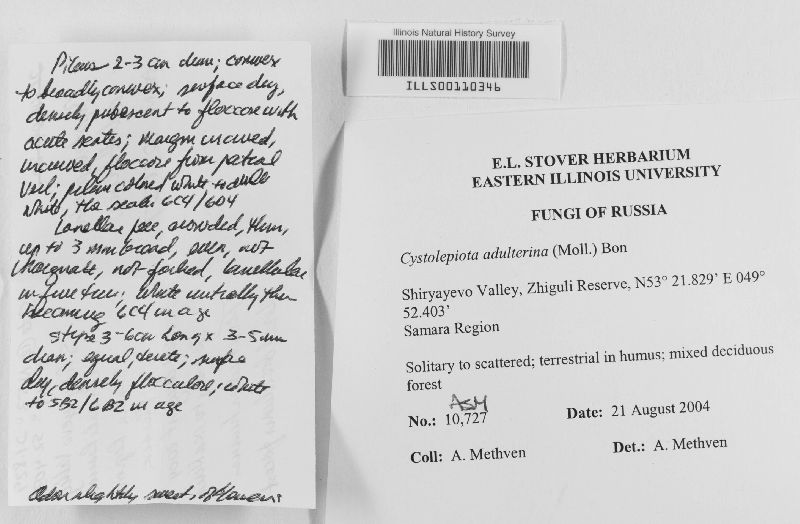 Pileus 2-3 cm diam; convex
to broadly convex; surface dry,
densely pubescent to floccose with
acute scales; margin incurved,
incurved, floccose from partial
veil; pileus colored white to
white, the scales 6C4/6D4
Lamellae free, crowded, thin,
up to 3 mm broad, even, not
marginate, not forked, lamellulae
in tiers; white initially then
becoming 6C4 in age
stipe 3-6cm long x 3-5mm
diam; equal, terete; surface
dry, densely flocculose; white
to 5B2/6B2 in age
odor slightly sweet,
Illinois Natural History Survey
ILLS00110346
E.L. STOVER HERBARIUM
EASTERN ILLINOIS UNIVERSITY
FUNGI OF RUSSIA
Cystolepiota adulterina (Moll.) Bon
Shiryayevo Valley, Zhiguli Reserve, N53° 21.829' E 049°
52.403'
Samara Region
Solitary to scattered; terrestrial in humus; mixed deciduous
forest
ASM
No.: 10,727 Date: 21 August 2004
Coll: A. Methven Det.: A. Methven